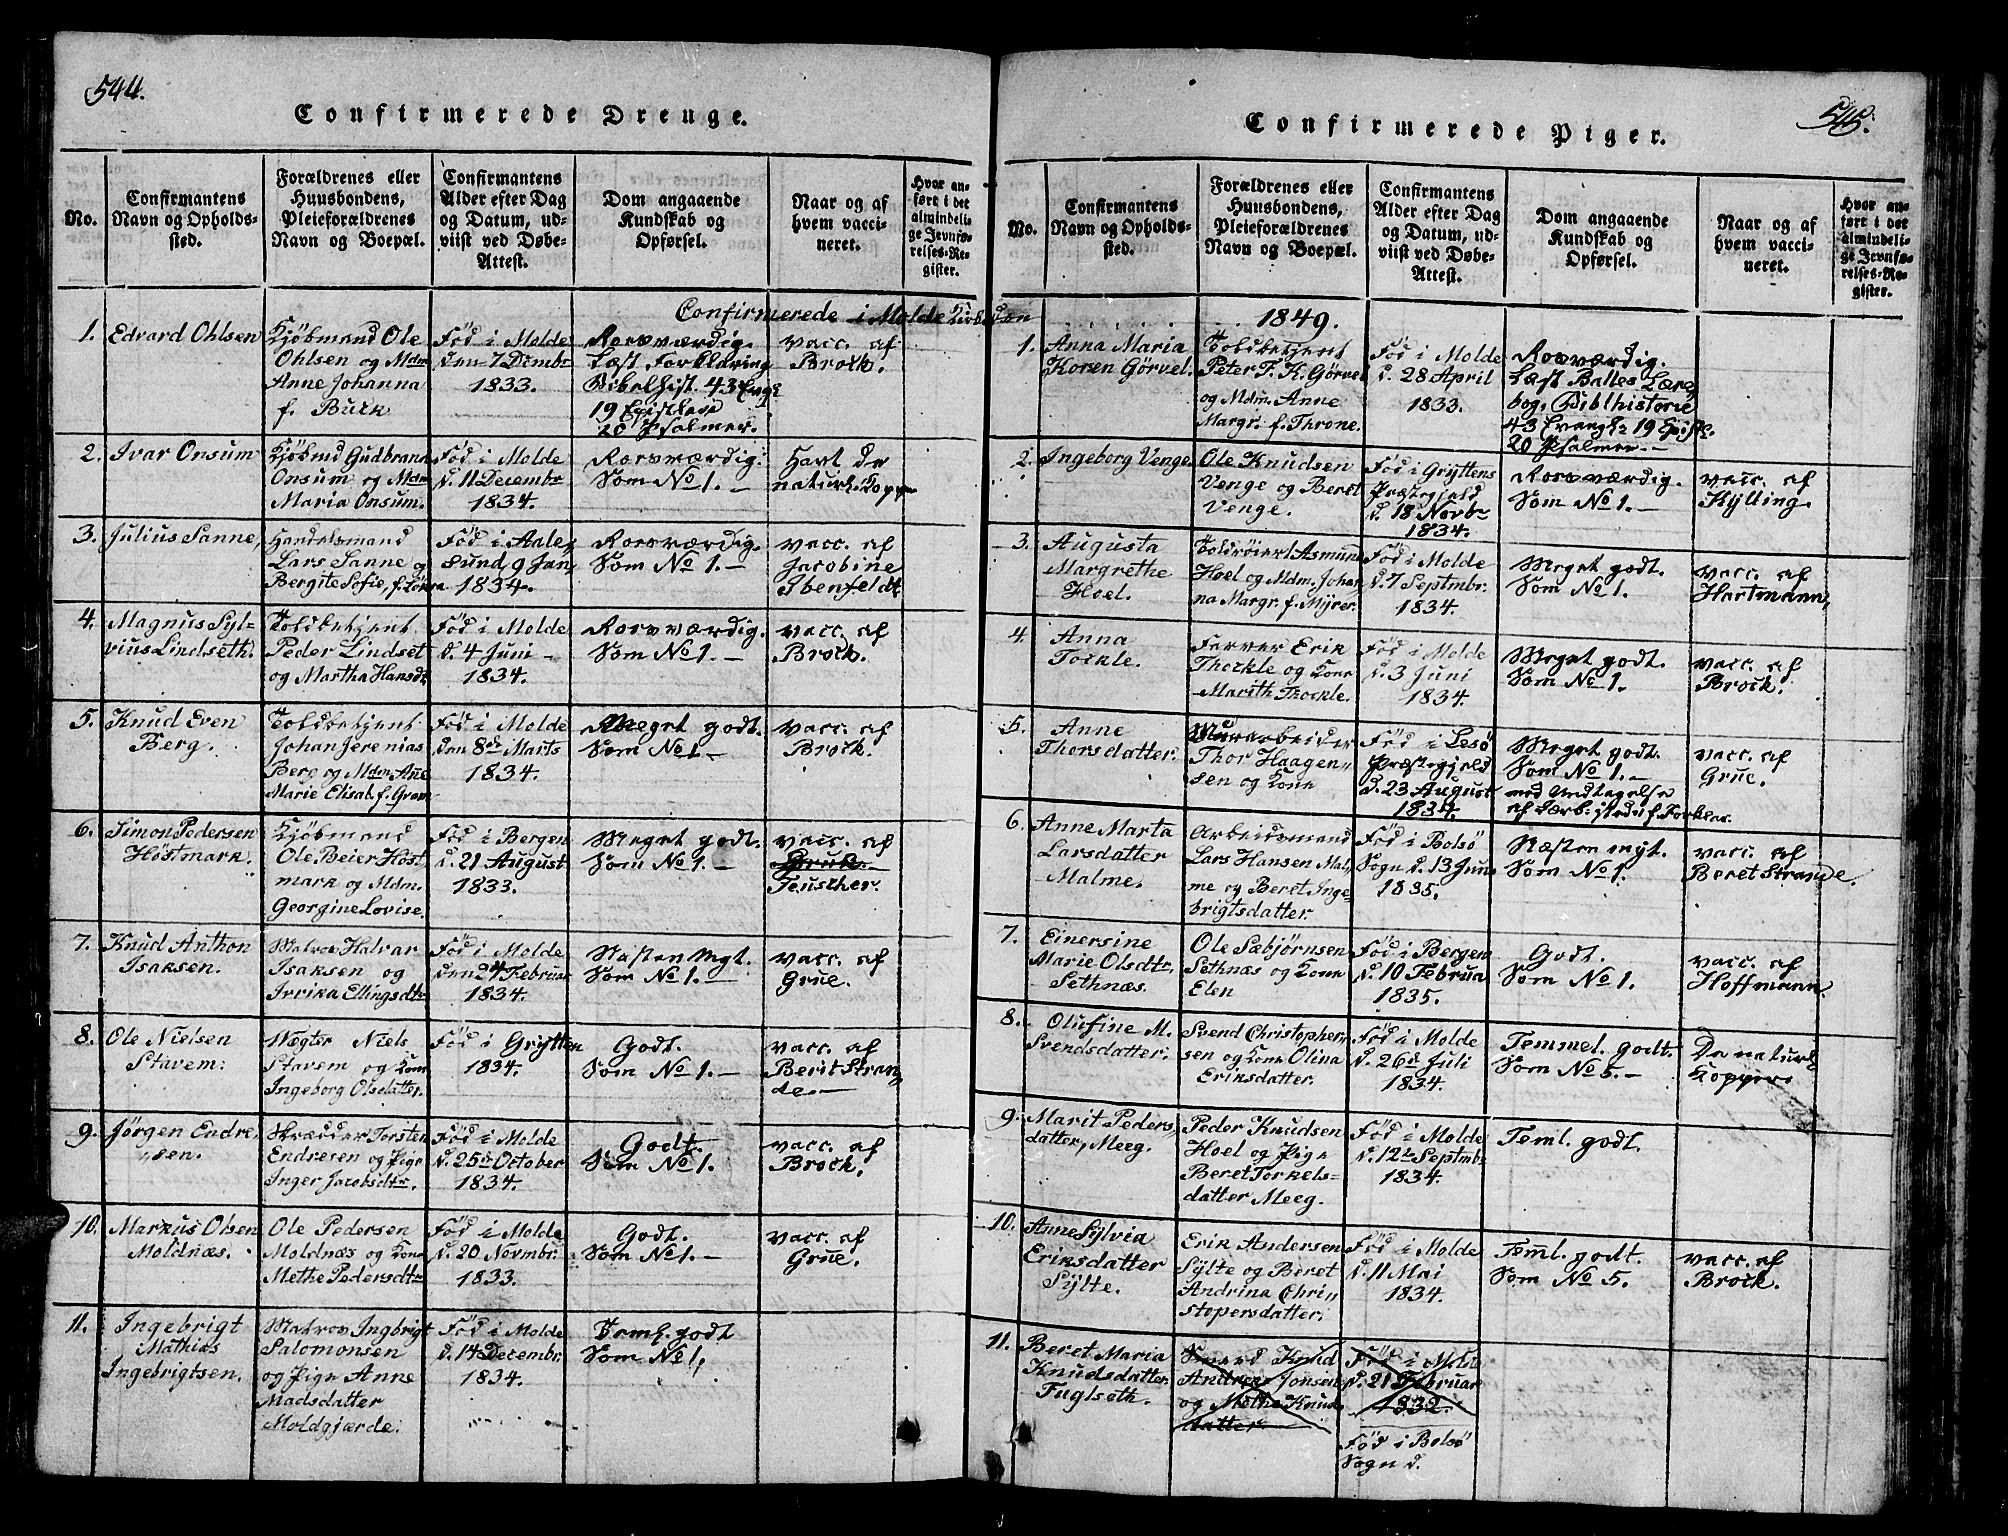 544.
Confirmerede Drenge.
No.
Confirmantens
Navn og Opholds-
sted.
Forældrenes eller
Huusbondens,
Pleieforældrenes
Navn og Boepæl.
Confirmantens
Alder efter Dag
og Datum, ud-
viist ved Døbe-
Attest.
Dom angaaende
Kundskab og
Opførsel.
Naar og af
hvem vacci-
neret.
Hvor an-
ført i det
almindeli-
ge Jevnfø-
relses-Re-
gister.
Confirmerede i Molde Kirke den
1.
Edvard Ohlsen
Kjöbmand Ole
Ohlsen og Mdm
Anne Johanna
f. Buck
Föd i Molde
den 7 Decmbr
1833.
Rosværdig.
Læst Forklaring
Bibelhist. 43 Evgl
19 Epistler
20 Psalmer.
vacc. af
Brock.
2.
Ivar Onsum
Kjöbmd Gudbrann
Onsum og Mdm
Maria Onsum.
Föd i Molde
d. 11 Decembr
1834.
Rosværdig.
Som No 1.
Havt de
naturl. Kopper
3.
Julius Sanne,
Handelsmand
Lars Sanne og
Bergite Sofie, f. Löken
Föd i Aale-
sund 9 Jan,
1834.
Rosværdig.
Som No 1.
vacc. af
Jacobine
Ibenfeldt
4.
Magnus Syl-
vius Lindseth.
Toldbetjent
Peder Lindset
og Martha Hansdt
Föd i Molde
d. 4 Juni
1834.
Rosværdig.
Som No 1.
vacc. af
Brock.
5.
Knud Even
Berg.
Toldbetjent
Johan Jeremias
Berg og Mdm. Ane
Marie Elisab. f. Gram
Föd i Molde
den 8de Marts
1834.
Meget godt.
Som No 1.
vacc. af
Brock.
6.
Simon Pedersen
Höstmark.
Kjöbmand
Ole Beier Höst
mark og Mdm.
Georgine Lovise.
Föd i Bergen
d. 21 August
1833.
Meget godt.
Som No 1.
vacc. af
Teuscher.
7.
Knud Anthon
Isaksen.
Matros Halvar
Isaksen og
Ivrika Ellingsdtr
Föd i Molde
den 24 Februar
1834.
Næsten Mgt.
Som No 1.
vacc. af
Grue.
8.
Ole Nielsen
Stavem.
Vægter Niels
Stavem og Kone
Ingeborg Olsdatter.
Föd i Grytten
1834.
Godt.
Som No 1.
vacc. af
Berit Stran,
de.
9.
Jörgen Endre,
sen.
Skrædder Torsten
Endresen og Pige
Inger Jacobsdtr.
Föd i Molde
d. 25de October
1834.
Godt.
Som No 1.
vacc. af
Brock.
10.
Markus Olsen
Moldnæs.
Ole Pedersen
Moldnæs og Kone
Methe Pedersdtr
Föd i Molde
d. 20 Novmbr.
1833.
Godt.
Som No 1.
vacc. af
Grue.
11.
Ingebrigt
Mathias
Ingebrigtsen.
Matros Ingbrigt
Salomonsen
og Pige Anne
Madsdatter
Moldgjærde.
Föd i Molde
d. 14 Decembr.
1834.
Teml. godt
Som No 1.
545.
Confirmerede Piger.
No.
Confirmantens
Navn og Opholds-
sted.
Forældrenes eller
Huusbondens,
Pleieforældrenes
Navn og Boepæl.
Confirmantens
Alder efter Dag
og Datum, ud-
viist ved Døbe-
Attest.
Dom angaaende
Kundskab og
Opførsel.
Naar og af
hvem vacci-
neret.
Hvor an-
ført i det
almindeli-
ge Jevnfø-
relses-Re-
gister.
1849.
1.
Anna Maria
Koren Görvel.
Toldbetjent
Peter F. K. Görvel
og Mdm. Anne
Margr. f. Throne.
Föd i Molde
d. 28 April
1833.
Rosværdig.
Læst Balles Lære
bog, Biblhistorie
43 Evangl. 19 Epistl.
20 Psalmer.
2.
Ingeborg Venge
Ole Knudsen
Venge og Beret
Venge.
Föd i Gryttens
Præstegjeld
d. 18 Novbr
1834.
Rosværdig.
Som No 1.
vacc. af
Kylling.
3.
Augusta
Margrethe
Hoel.
Toldröiert Asmund
Hoel og Mdm. Johan
na Margr. f. Myrer.
Föd i Molde
d. 7 Septmbr.
1834.
Meget godt.
Som No 1.
vacc. af
Hartmann,
4.
Anna
Tockle.
Farver Erik
Thockle og Kone
Marith Thockle.
Föd i Molde
d. 3 Juni
1834.
Meget godt.
Som No 1.
vacc. af
Brock.
5.
Anne
Thorsdatter.
Murarbeider
Thor Haagen,
sen og Kone
Föd i Lesö
Præstegjeld
d. 23 August
1834.
Meget godt.
Som No 1.
med Undtagelse
af Lærb: istedet f. Forklar.
vacc. af
Grue.
6.
Anne Marta
Larsdatter
Malme.
Arbeidsmand
Lars Hansen Mal,
me og Beret Inge
brigtsdatter.
Föd i Bolsö
Sogn d. 13 Juni
1835.
Næsten mgt.
Som No 1.
vacc. af
Beret Strande.
7.
Einersine
Marie Olsdtr.
Sethnæs.
Ole Sæbjörnsen
Sethnæs og Kone
Elen
Föd i Bergen
d. 10 Februa
1835.
Godt.
Som No 1.
vacc. af
Hoffmann.
8.
Olufine M.
Svendsdatter.
Svend Christopher,
sen og Kone Olina
Eriksdatter.
Föd i Molde
d. 26de Juli
1834.
Temmel. godt.
Som No 5.
De naturl.
Kopper
9.
Marit Peders,
datter, Meeg.
Peder Knudsen
Hoel og Pige
Beret Torkels-
datter Meeg.
Föd i Molde
d. 12te Septmbr
1834.
Teml. godt.
10.
Anne Sylvia
Eriksdatter
Sylte.
Erik Andersen
Sylte og Beret
Andrina Chri,
stopersdatter.
Föd i Molde
d. 11 Mai
1834.
Teml. godt.
Som No 5.
vacc. af
Brock.
11.
Beret Maria
Knudsdatter
Fuglseth.
Smeed Knud
Andreas Jonsen
og Methe Knuds
datter
Föd i Molde
d. 21 Februar
1832.
Föd i Bolsö
Sogn d.